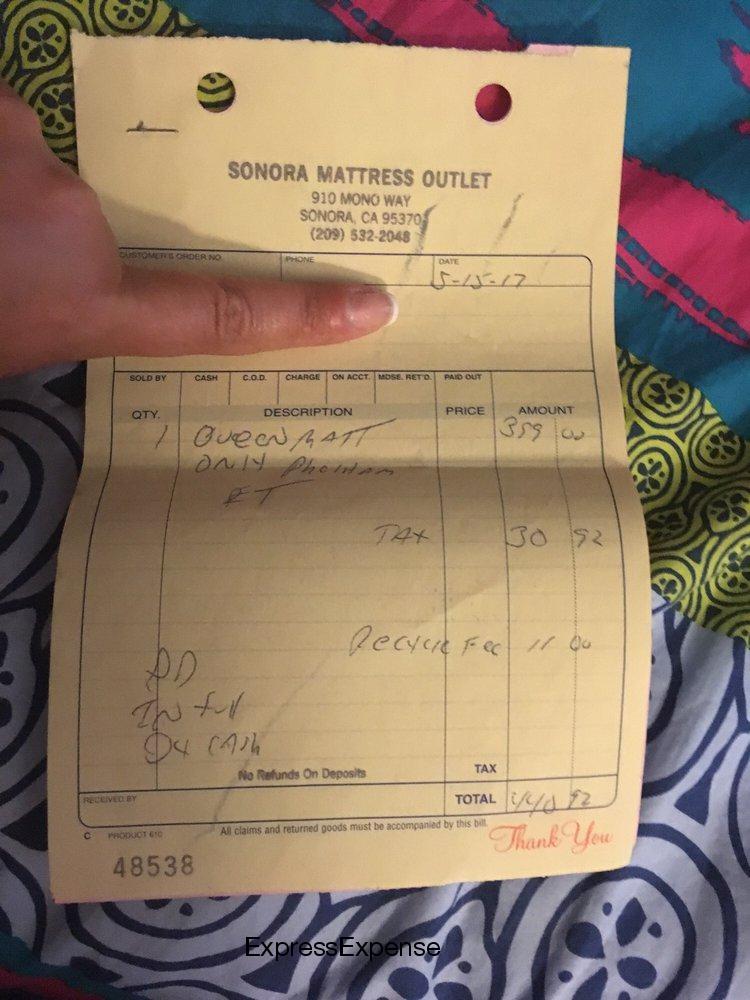 SONORA MATTRESS OUTLET
910 MONO WAY
SONORA, CA 95370
(209) 532-2048
CUSTOMER'S ORDER NO. PHONE DATE
5-15-17
SOLD BY CASH C.O.D. CHARGE ON ACCT. MDSE. RET'D. PAID OUT
QTY. DESCRIPTION PRICE AMOUNT
1 QUEEN MATT 399 00
ONLY
ET
TAX 30 92
Recycle Fee 11 00
PD
IN full
By CASH
No Refunds On Deposits TAX
RECEIVED BY TOTAL 440 92
C PRODUCT 610 All claims and returned goods must be accompanied by this bill.
Thank You
48538
ExpressExpense